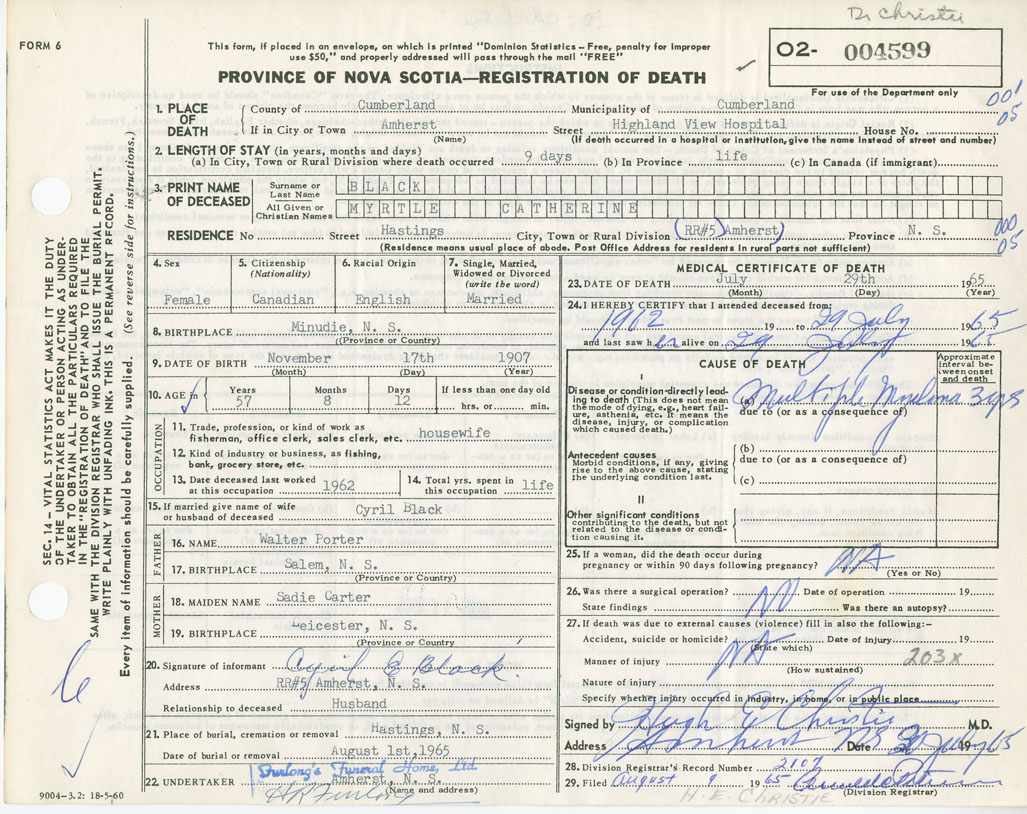 Dr Christie
FORM 6
This form, if placed in an envelope, on which is printed "Dominion Statistics - Free, penalty for improper
use $50," and properly addressed will pass through the mail "FREE"
PROVINCE OF NOVA SCOTIA—REGISTRATION OF DEATH
O2- 004599
For use of the Department only
001
05
1. PLACE OF DEATH
County of Cumberland Municipality of Cumberland
If in City or Town Amherst Street Highland View Hospital House No.
(Name) (If death occurred in a hospital or institution, give the name instead of street and number)
2. LENGTH OF STAY (in years, months and days)
(a) In City, Town or Rural Division where death occurred 9 days (b) In Province life (c) In Canada (if immigrant)
3. PRINT NAME OF DECEASED
Surname or Last Name BLACK
All Given or Christian Names MYRTLE CATHERINE
RESIDENCE No Street Hastings City, Town or Rural Division (RR#5) Amherst) Province N. S.
000
05
(Residence means usual place of abode. Post Office Address for residents in rural parts not sufficient)
4. Sex
Female
5. Citizenship
(Nationality)
Canadian
6. Racial Origin
English
7. Single, Married, Widowed or Divorced
(write the word)
Married
8. BIRTHPLACE Minudie, N. S.
(Province or Country)
9. DATE OF BIRTH November 17th 1907
(Month) (Day) (Year)
10. AGE in Years 57 Months 8 Days 12
If less than one day old
hrs. or min.
OCCUPATION
11. Trade, profession, or kind of work as
fisherman, office clerk, sales clerk, etc. housewife
12. Kind of industry or business, as fishing,
bank, grocery store, etc.
13. Date deceased last worked
at this occupation 1962
14. Total yrs. spent in
this occupation life
15. If married give name of wife
or husband of deceased Cyril Black
FATHER
16. NAME Walter Porter
17. BIRTHPLACE Salem, N. S.
(Province or Country)
MOTHER
18. MAIDEN NAME Sadie Carter
19. BIRTHPLACE Leicester, N. S.
(Province or Country)
20. Signature of informant Cyril E Black
Address RR#5 Amherst, N. S.
Relationship to deceased Husband
21. Place of burial, cremation or removal Hastings, N. S.
Date of burial or removal August 1st, 1965
Furlong's Funeral Home, Ltd.
22. UNDERTAKER Amherst, N. S.
(Name and address)
9004-3.2: 18-5-60
MEDICAL CERTIFICATE OF DEATH
23. DATE OF DEATH July 29th 1965
(Month) (Day) (Year)
24. I HEREBY CERTIFY that I attended deceased from:
1962 19 to 29 July 1965
and last saw her alive on 29 July 1965
CAUSE OF DEATH
Approximate interval between onset and death
I
Disease or condition directly leading to death (This does not mean the mode of dying, e.g., heart failure, asthenia, etc. It means the disease, injury, or complication which caused death.)
(a) Multiple Myeloma 3 yrs
due to (or as a consequence of)
Antecedent causes
Morbid conditions, if any, giving rise to the above cause, stating the underlying condition last.
(b)
due to (or as a consequence of)
(c)
II
Other significant conditions
contributing to the death, but not related to the disease or condition causing it.
25. If a woman, did the death occur during
pregnancy or within 90 days following pregnancy? NA
(Yes or No)
26. Was there a surgical operation? No Date of operation 19
State findings Was there an autopsy?
27. If death was due to external causes (violence) fill in also the following:-
Accident, suicide or homicide? NA Date of injury 19
(State which)
Manner of injury 203x
(How sustained)
Nature of injury
Specify whether injury occurred in industry, in home, or in public place
Signed by Hugh E Christie M.D.
Address Amherst NS Date July 1965
28. Division Registrar's Record Number 2107
29. Filed August 9 1965
(Division Registrar)
H. E. CHRISTIE
SEC. 14 - VITAL STATISTICS ACT MAKES IT THE DUTY
OF THE UNDERTAKER OR PERSON ACTING AS UNDER-
TAKER TO OBTAIN ALL THE PARTICULARS REQUIRED
IN THE "REGISTRATION OF DEATH" AND TO FILE THE
SAME WITH THE DIVISION REGISTRAR WHO SHALL ISSUE THE BURIAL PERMIT.
WRITE PLAINLY WITH UNFADING INK. THIS IS A PERMANENT RECORD.
Every item of information should be carefully supplied. (See reverse side for instructions.)